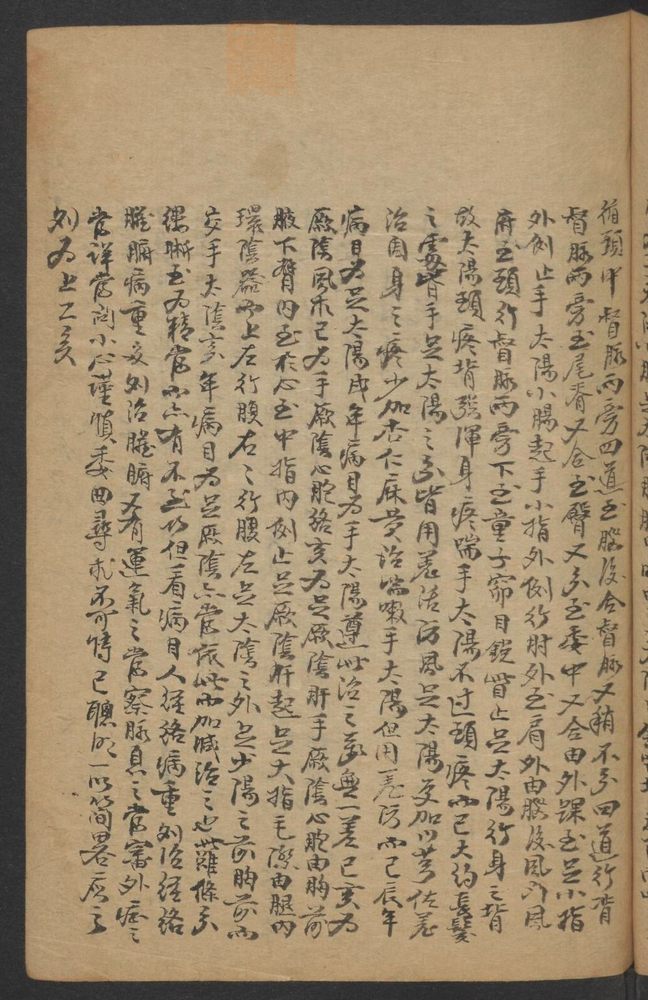 循頭中督脈两旁四道至腦後合督脈又稍不分四道行背
督脈两旁至尾脊又合至臀又分至委中又合由外踝至足小指
外側止手太陽小腸起手小指外側行肘外至肩外由腦後風門風
府至頭行督脈两旁下至童子窌目銳眥止足太陽行身之背
故太陽頭疼背强渾身疼喘手太陽不过頭疼而已大約長髮
之處皆手足太陽之分皆用羌活防風足太陽更加川芎佐羌
治周身之疼少加杏仁麻黄治喘嗽手太陽但用羌防而已辰年
病目为足太陽戌年病目为手太陽遵此治之萬無一差已亥为
厥陰風木已为手厥陰心胞絡亥为足厥陰肝手厥陰心胞由胸前
腋下臂内至於心至中指内側止足厥陰肝起足大指毛際由腿内
環陰器而上左行腹右右行腹左足太陰之外足少陽之前胸前而
交手太陰亥年病目为足厥陰亦當依此而加減治之也雖條分
縷晰至为精當而亦有不然乃但看病目人經絡病重則治經絡
臟腑病重則治臟腑又有運氣之當察脉息之當審外症之
當詳當問小心謹慎委曲尋求不可恃已聰明一以簡畧應之
列为上工矣